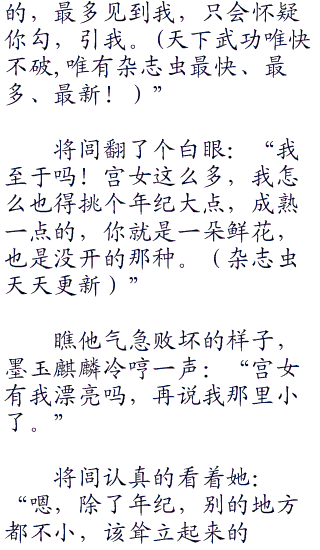 的，最多见到我，只会怀疑
你勾，引我。(天下武功唯快
不破,唯有杂志虫最快、最
多、最新！)”
将闾翻了个白眼：“我
至于吗！宫女这么多，我怎
么也得挑个年纪大点，成熟
一点的，你就是一朵鲜花，
也是没开的那种。（杂志虫
天天更新）”
瞧他气急败坏的样子，
墨玉麒麟冷哼一声：“宫女
有我漂亮吗，再说我那里小
了。”
将闾认真的看着她：
“嗯，除了年纪，别的地方
都不小，该耸立起来的